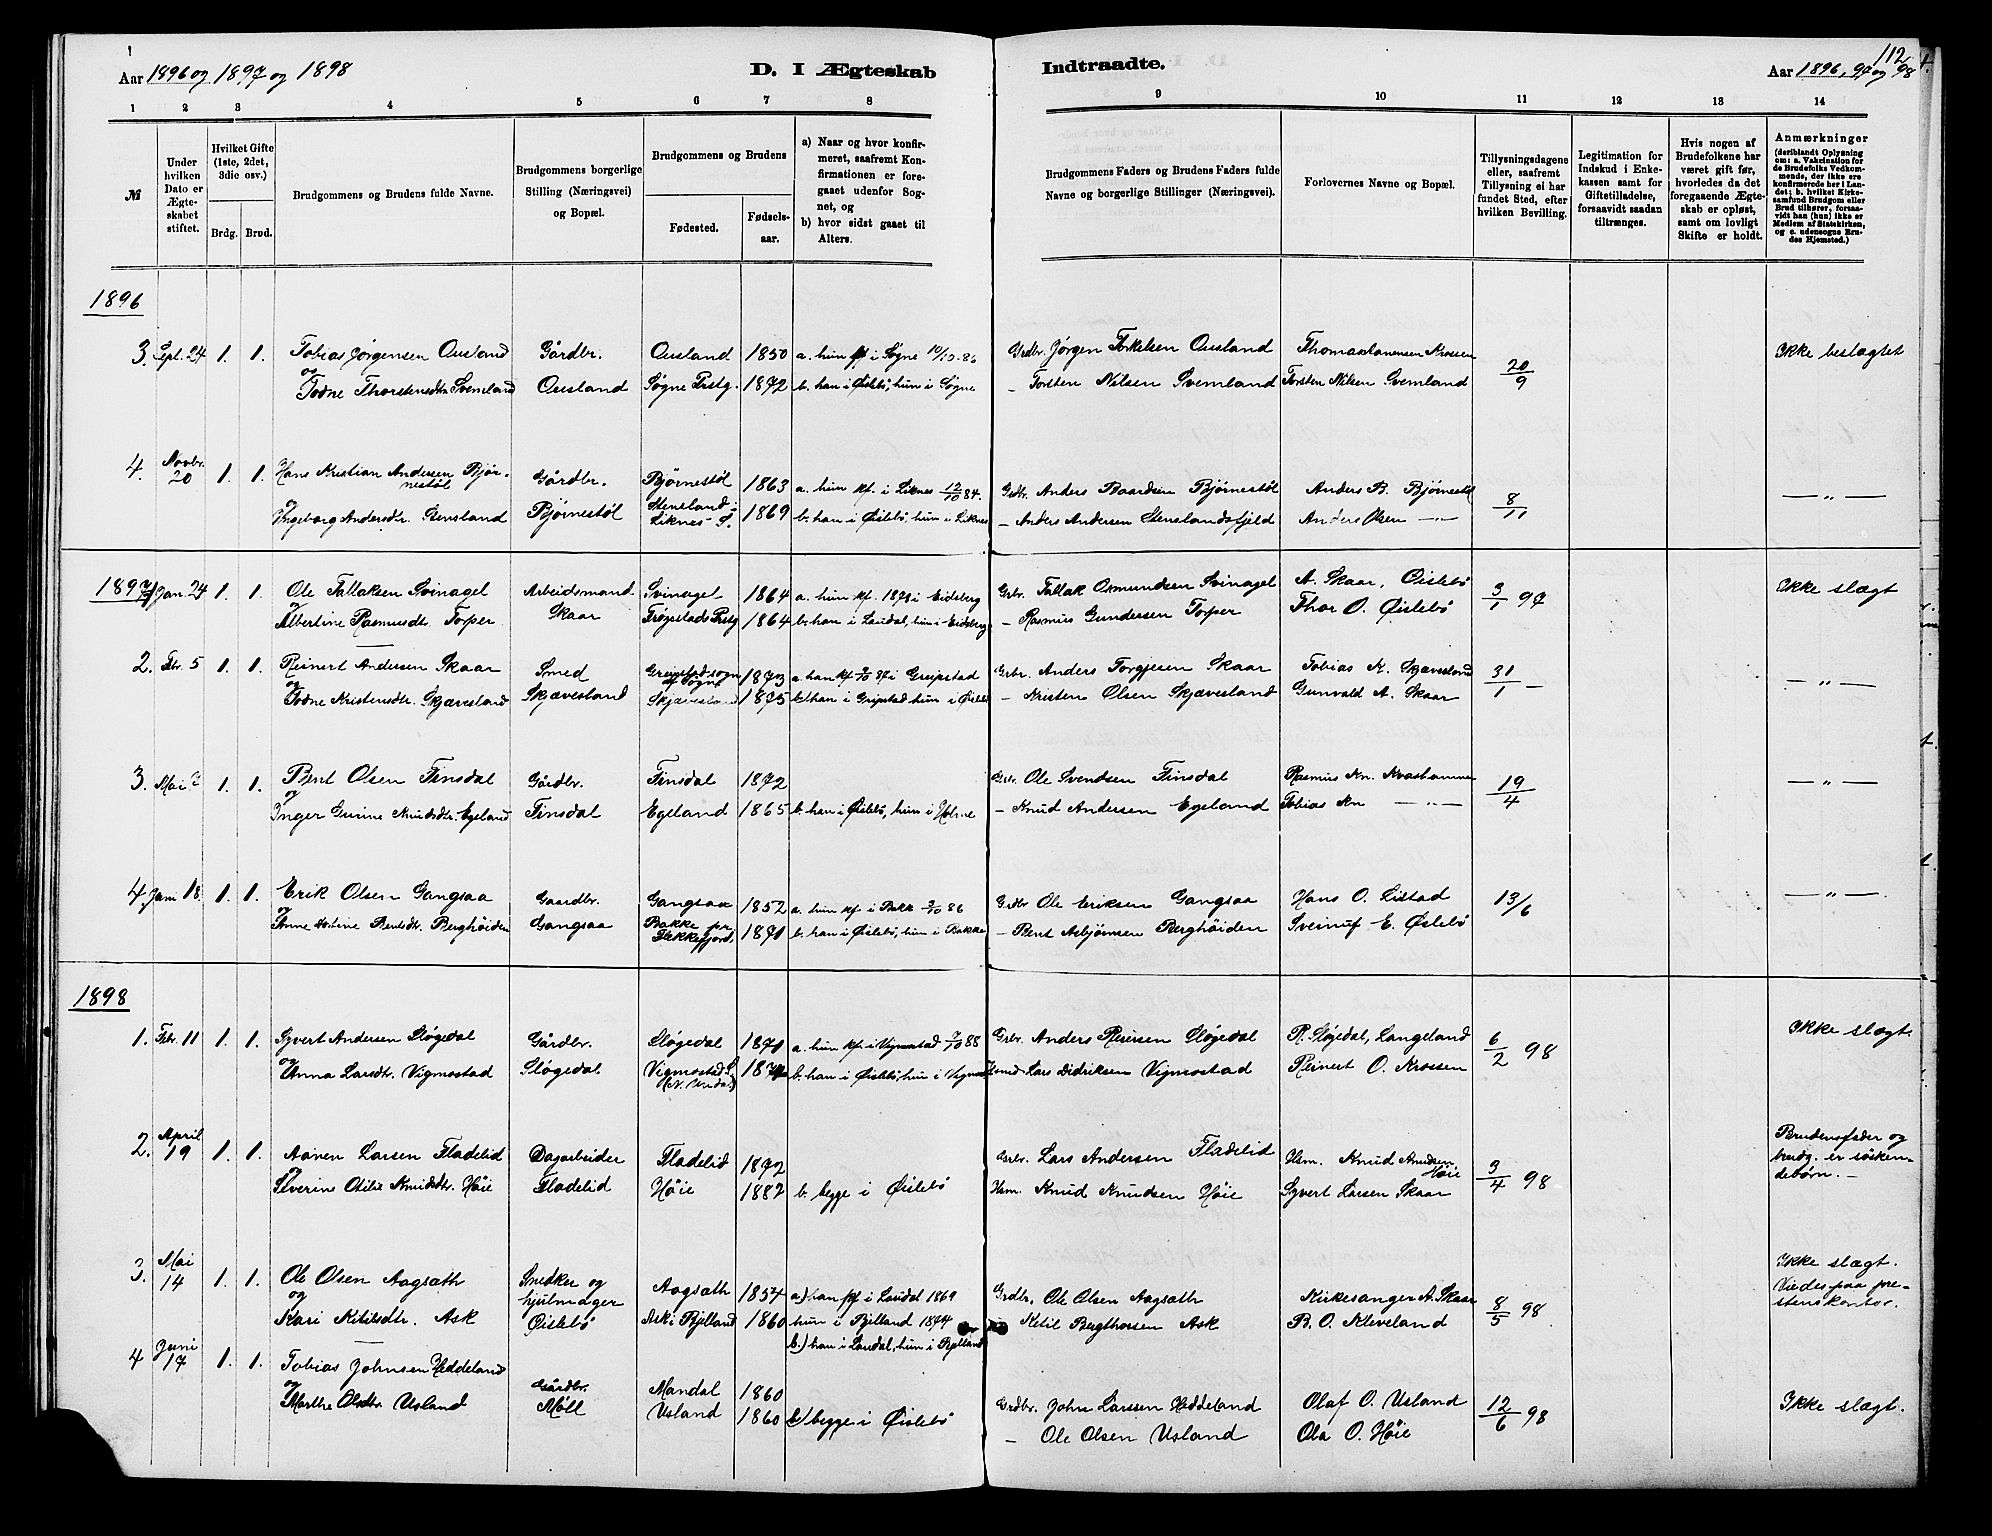 Aar 1896 og 1897 og 1898
D. I Ægteskab
Indtraadte.
112
Aar 1896, 97 og 98
1 2 3 4 5 6 7 8 9 10 11 12 13 14
№
Under hvilken Dato er Ægteskabet stiftet.
Hvilket Gifte (1ste, 2det, 3die osv.)
Brdg. Brud.
Brudgommens og Brudens fulde Navne.
Brudgommens borgerlige Stilling (Næringsvei) og Bopæl.
Brudgommens og Brudens
Fødested.
Fødselsaar.
a) Naar og hvor konfirmeret, saafremt Konfirmationen er foregaaet udenfor Sognet, og
b) hvor sidst gaaet til Alters.
Brudgommens Faders og Brudens Faders fulde Navne og borgerlige Stillinger (Næringsvei).
Forlovernes Navne og Bopæl.
Tillysningsdagene eller, saafremt Tillysning ei har fundet Sted, efter hvilken Bevilling.
Legitimation for Indskud i Enkekassen samt for Giftetilladelse, forsaavidt saadan tiltrænges.
Hvis nogen af Brudefolkene har været gift før, hvorledes da det foregaaende Ægteskab er opløst, samt om lovligt Skifte er holdt.
Anmærkninger
(deriblandt Oplysning om: a. Vakcination for de Brudefolks Vedkommende, der ikke ere konfirmerede her i Landet; b. hvilket Kirkesamfund Brudgom eller Brud tilhører, forsaavidt han (hun) ikke er Medlem af Statskirken, og c. udensogns Brudes Hjemsted.)
1896
3. Sept. 24 1. 1. Tobias Jørgensen Ousland Gårdbr. Ousland 1850 a. hun kf i Søgne 10/10-86 Grdbr. Jørgen Torkelsen Ousland Thomas Hansen Krossen 20/9 Ikke beslægtet
og Todne Thorstensdtr. Svemland Ousland Søgne Prstg. 1872 b. han i Øislebø, hun i Søgne – Torsten Nilsen Svemland Torsten Nilsen Svemland
4. Novbr. 20 1. 1. Hans Kristian Andersen Bjørnestøl Gårdbr. Bjørnestøl 1863 a. hun kf. i Liknes 12/10 84. Grdbr. Anders Baardsen Bjørnestøl Anders B. Bjørnestøl 8/11 — " —
og Ingeborg Andersdtr. Stensland Bjørnestøl Stensland - Liknes S. 1869 b. han i Øislebø, hun i Liknes – Anders Andersen Stenslandsfjeld Anders Olsen — " —
1897
1 Jan. 24 1. 1. Ole Tallaksen Svinagel Arbeidsmand Svinagel 1864 a. hun kf. 1878 i Eidsberg Grbr. Tallak Osmundsen Svinagel A. Skaar, Øislebø 3/1 97 Ikke slægt
og Albertine Rasmusdtr. Torper Skaar Trøgstads Prstg 1864 b. han i Laudal, hun i Eidsberg – Rasmus Gundersen Torper Thor O. Øislebø
2. Fbr. 5 1. 1. Reinert Andersen Skaar Smed Greipstad sogn af Søgne 1873 a. han kf 9/10 87 i Greipstad Grbr. Anders Torgjesen Skaar Tobias K. Skjævesland 31/1 — — " —
og Todne Kristensdtr. Skjævesland Skjævesland Skjævesland 1875 b. han i Gripstad hun i Øislebø – Kristen Olsen Skjævesland Gunvald A. Skaar
3. Mai 1. 1. Bent Olsen Finsdal Gårdbr. Finsdal 1872 Grbr. Ole Svendsen Finsdal Rasmus Kn. 19/4 — " —
og Inger Gurine Knudsdtr. Egeland Finsdal Egeland 1865 b. han i Øislebø, hun i Holme – Knud Andersen Egeland Tobias Kn — " —
4. Juni 18 1. 1. Erik Olsen Gangsaa Gaardbr. Gangsaa 1852 a. hun kf i Bakke 3/10 86 Grdbr Ole Eriksen Gangsaa Hans O. Listad 13/6 — " —
og Anne Bentsdtr. Berghöiden Gangsaa Bakke pr. Flekkefjord. 1871 b. han i Øislebø, hun i Bakke – Bent Asbjørnsen Berghöiden Sveinuf E. Øislebø
1898
1. Febr. 11 1. 1. Syvert Andersen Sløgedal Gårdbr. Sløgedal 1871 a. hun kf. i Vigmostad 7/10 88 Grbr. Anders Reiersen Sløgedal R. Sløgedal, Langeland 6/2 98 Ikke slægt.
og Anna Larsdtr. Vigmostad Sløgedal Vigmostad S. (N. Undal) 1874 b. han i Øislebø, hun i Vigmostad Lars Didriksen Vigmostad Reinert O. Krossen
2. April 19 1. 1. Aanen Larsen Fladelid Dagarbeider Fladelid 1872 Grbr. Lars Andersen Fladelid Hsm. Knud Knudsen Höie 3/4 98 Brudensfader og brudg. er söskendebörn. –
og Severine Otilie Knudsdtr. Höie Fladelid Höie 1882 b. begge i Øislebø Hsm. Knud Knudsen Höie Syvert Larsen Skaar
3. Mai 14 1. 1. Ole Olsen Aagsæth Snedker og hjulmager Aagsæth 1854 a) han kf i Laudal 1869 Grdbr. Ole Olsen Aagsæth Kirkesanger A. Skaar 8/5 98 Ikke slægt. Viedes paa prestens kontor.
og Kari Ketilsdtr. Ask Øislebø Ask i Bjelland 1860 hun i Bjelland 1874 Ketil Bergthorsen Ask B. O. Kleveland
b.) han i Laudal, hun i Bjelland
4 Juni 17 1. 1. Tobias Johnsen Heddeland Gårdbr. Mandal 1860 Grdbr. John Larssen Heddeland Olaf O. Usland 12/6 98 Ikke slægt.
og Marthe Olsdtr Usland Möll Usland 1860 b) begge i Øislebø – Ole Olsen Usland Ola O. Höie